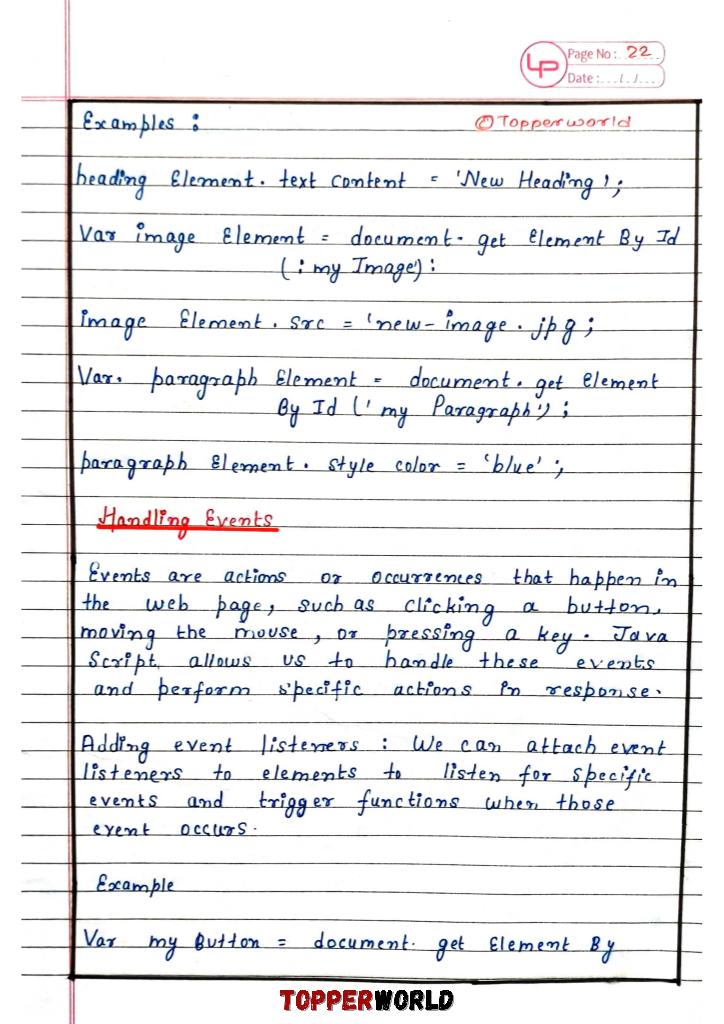 LP Page No: 22
Date: .../.../...
Examples :
© Topperworld
heading Element. text content = 'New Heading';
Var image Element = document. get Element By Id
(: my Image') :
image Element. src = 'new-image. jpg ;
Var. paragraph Element = document. get Element
By Id (' my Paragraph') ;
paragraph Element. style color = 'blue' ;
Handling Events
Events are actions or occurrences that happen in
the web page, such as clicking a button,
moving the mouse, or pressing a key. Java
Script, allows us to handle these events
and perform specific actions in response.
Adding event listeners : We can attach event
listeners to elements to listen for specific
events and trigger functions when those
event occurs.
Example
Var my Button = document. get Element By
TOPPERWORLD